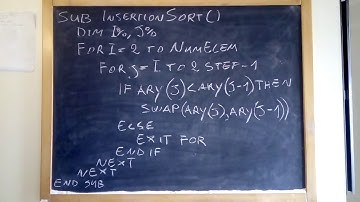 SUB INSERTIONSORT()
DIM I%, J%
FOR I = 2 TO NUMELEM
FOR J = I TO 2 STEP -1
IF ARY(J) < ARY(J-1) THEN
SWAP(ARY(J), ARY(J-1))
ELSE
EXIT FOR
END IF
NEXT
NEXT
END SUB